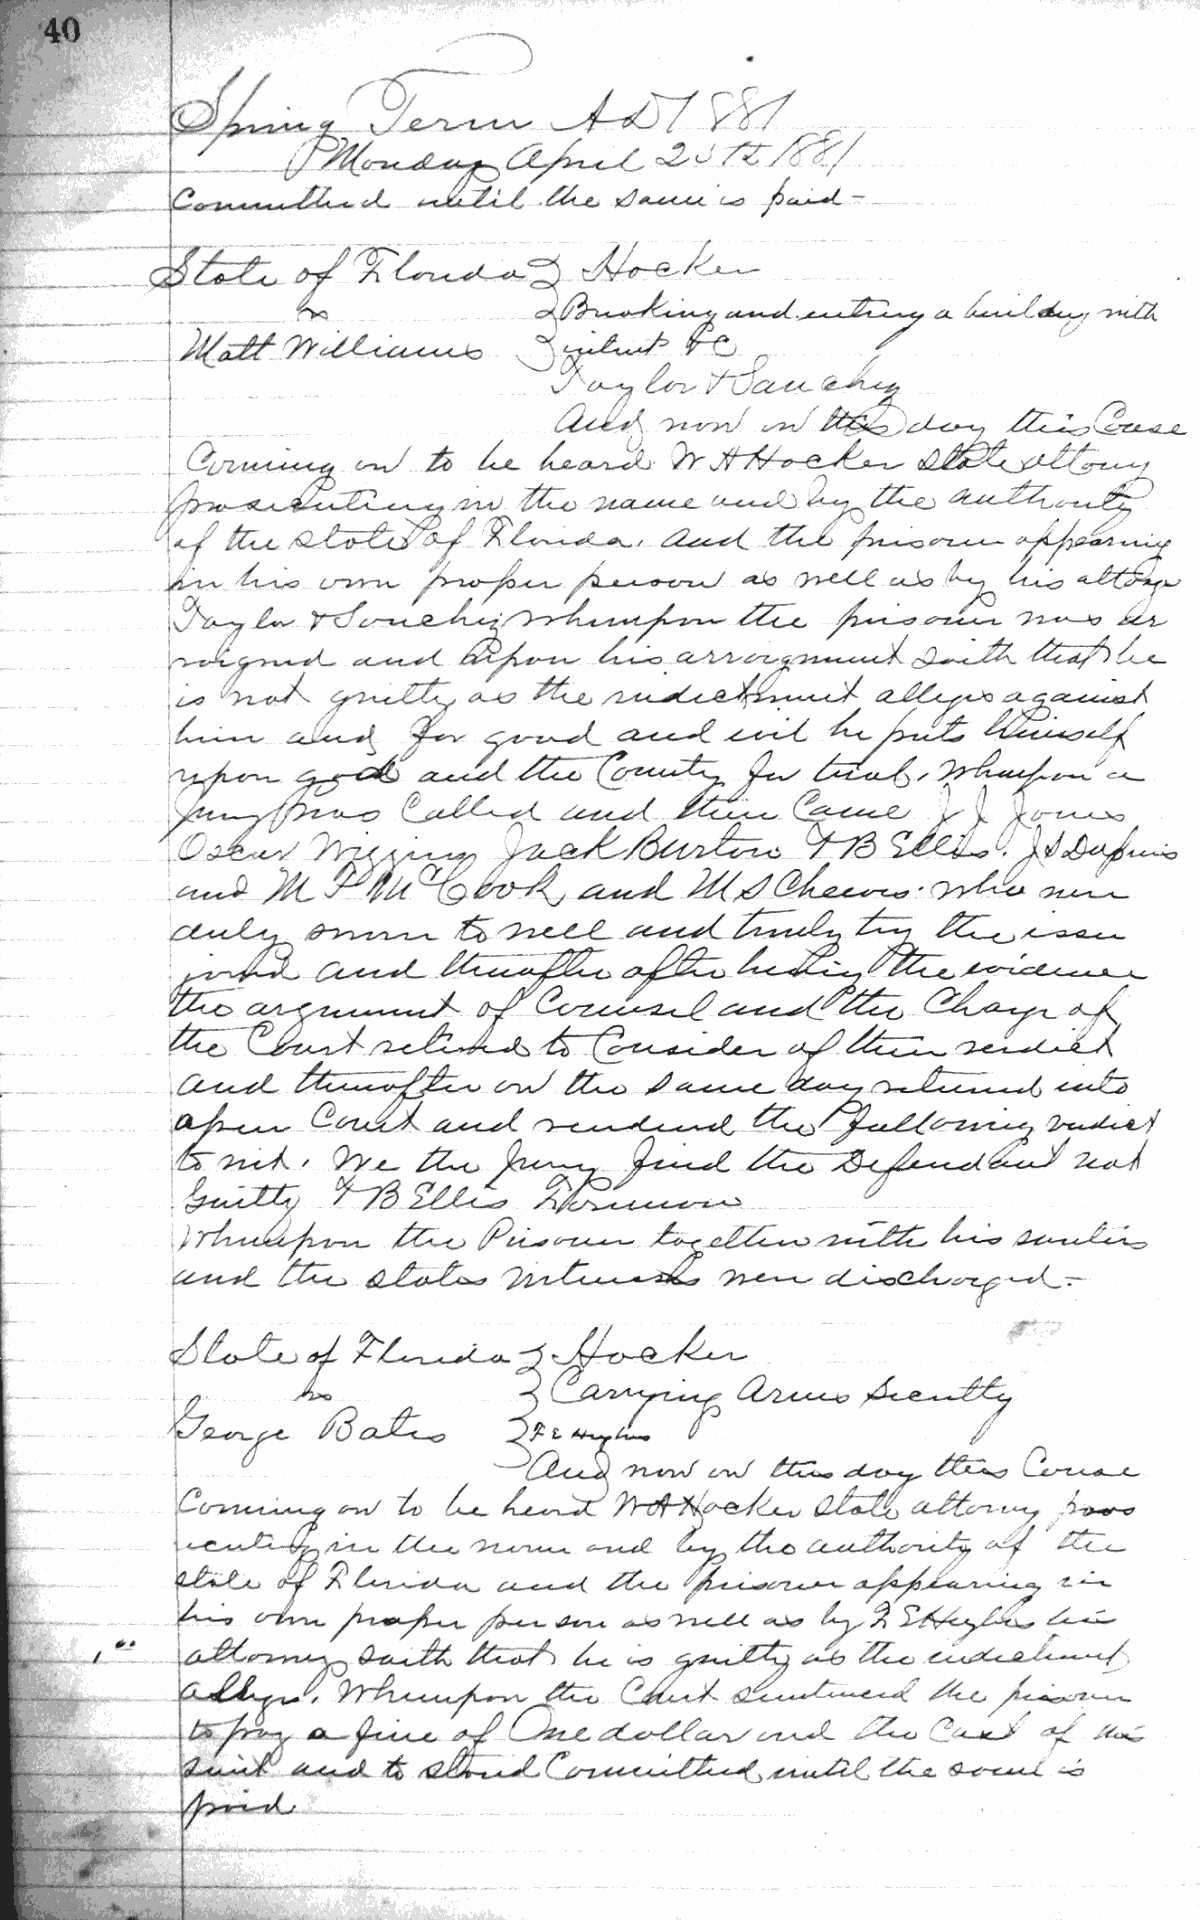 40
Spring Term AD 1881
Monday April 25th 1881
Committed until the same is paid -
State of Florida } Hocker
vs } Breaking and entring a building with
Matt Williams } intent &C
Taylor & Sanchez
And now on this day this Cause
Coming on to be heard W A Hocker State attorny
prosecuting in the name and by the authority
of the State of Florida. and the prisoner appearing
in his own proper person as well as by his attorny
Taylor & Sanchez whereupon the prisoner was ar
raigned and upon his arraignment saith that he
is not guilty as the indictment alleges against
him and for good and evil he puts himself
upon god and the County for trial. Whereupon a
Jury was Called and there Came J J Jones
Oscar Wiggins Jack Burton F B Ellis. J S
and M F McCook and M S Cheeves. who were
duly sworn to well and truly try the issue
joined and thereafter after hearing the evidence
the argument of Counsel and the Charge of
the Court retired to Consider of their verdict
and thereafter on the same day returned into
open Court and rendered the following verdict
to wit. We the Jury find the Defendant not
Guilty F B Ellis Foreman
Whereupon the Prisoner together with his sureties
and the states witnesses were discharged -
State of Florida } Hocker
vs } Carrying Arms Secretly
George Bates } F E Hughes
And now on this day this Cause
Coming on to be heard W A Hocker State attorny pros
ecuting in the name and by the authority of the
state of Florida and the prisoner appearing in
his own proper person as well as by F E Hughes his
attorney saith that he is guilty as the indictment
alleges. Whereupon the Court sentenced the prisoner
to pay a fine of One dollar and the Cost of this
suit and to stand Committed until the same is
paid